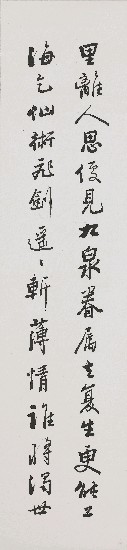 里離人思便見九泉眷屬也復生更能上
海乞仙術飛劍遥〻斬薄情誰將濁世